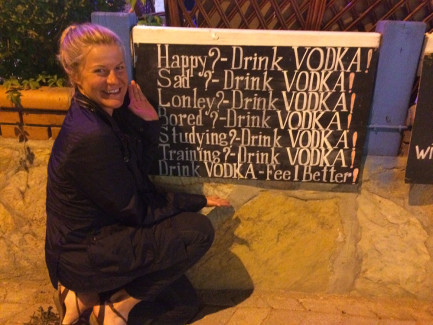 Happy?-Drink VODKA!
Sad?-Drink VODKA!
Lonley?-Drink VODKA!
Bored?-Drink VODKA!
Studying?-Drink VODKA!
Training?-Drink VODKA!
Drink VODKA-Feel Better!